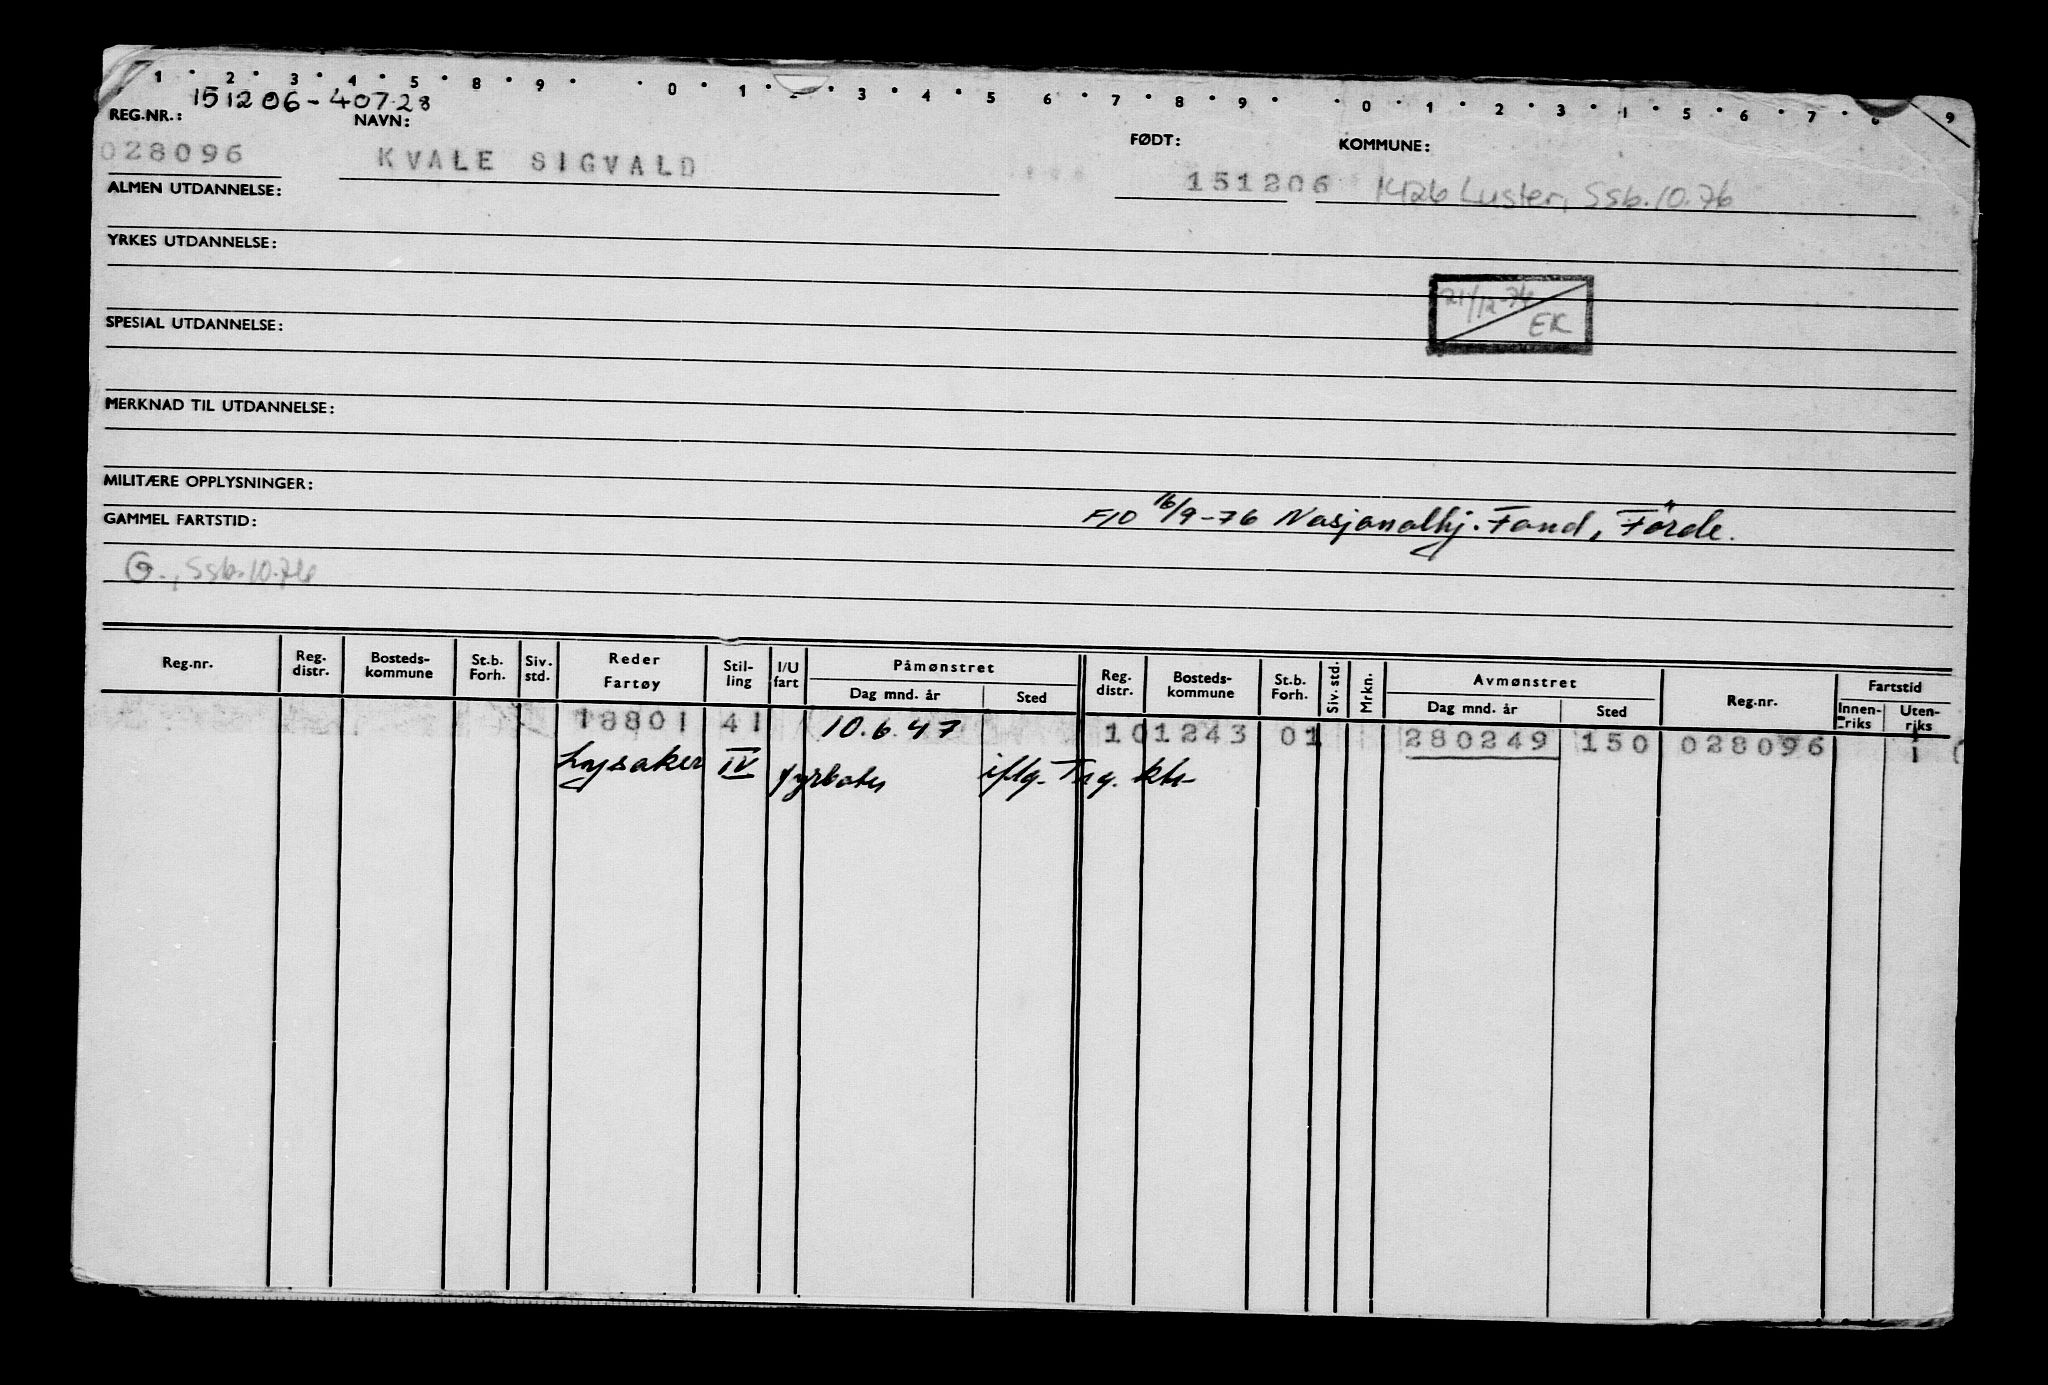 1 2 3 4 5 8 9 0 1 3 4 5 6 7 8 9 0 1 2 3 1 5 6 7 8 9
151206-40728
REG.NR.: NAVN: FØDT: KOMMUNE:
028096 KVALE SIGVALD 151206 1426 Luster, Ssb.10.76
ALMEN UTDANNELSE:
YRKES UTDANNELSE:
21/12-76
EK
SPESIAL UTDANNELSE:
MERKNAD TIL UTDANNELSE:
MILITÆRE OPPLYSNINGER:
GAMMEL FARTSTID: FID 16/9-76 Nasjonalhj. Fond, Förde.
G., Ssb.10.76
Reg.nr. Reg. distr. Bosteds-kommune St.b. Forh. Siv. std. Reder Fartøy Stil-ling I/U fart Påmønstret Dag mnd. år Sted Reg. distr. Bosteds-kommune St.b. Forh. Siv. std. Mrkn. Avmønstret Dag mnd. år Sted Reg.nr. Fartstid Innen-riks Uten-riks
18801 41 10.6.47 101243 01 280249 150 028096 1
Lysaker IV fyrbøter iflg. Trg. ktr